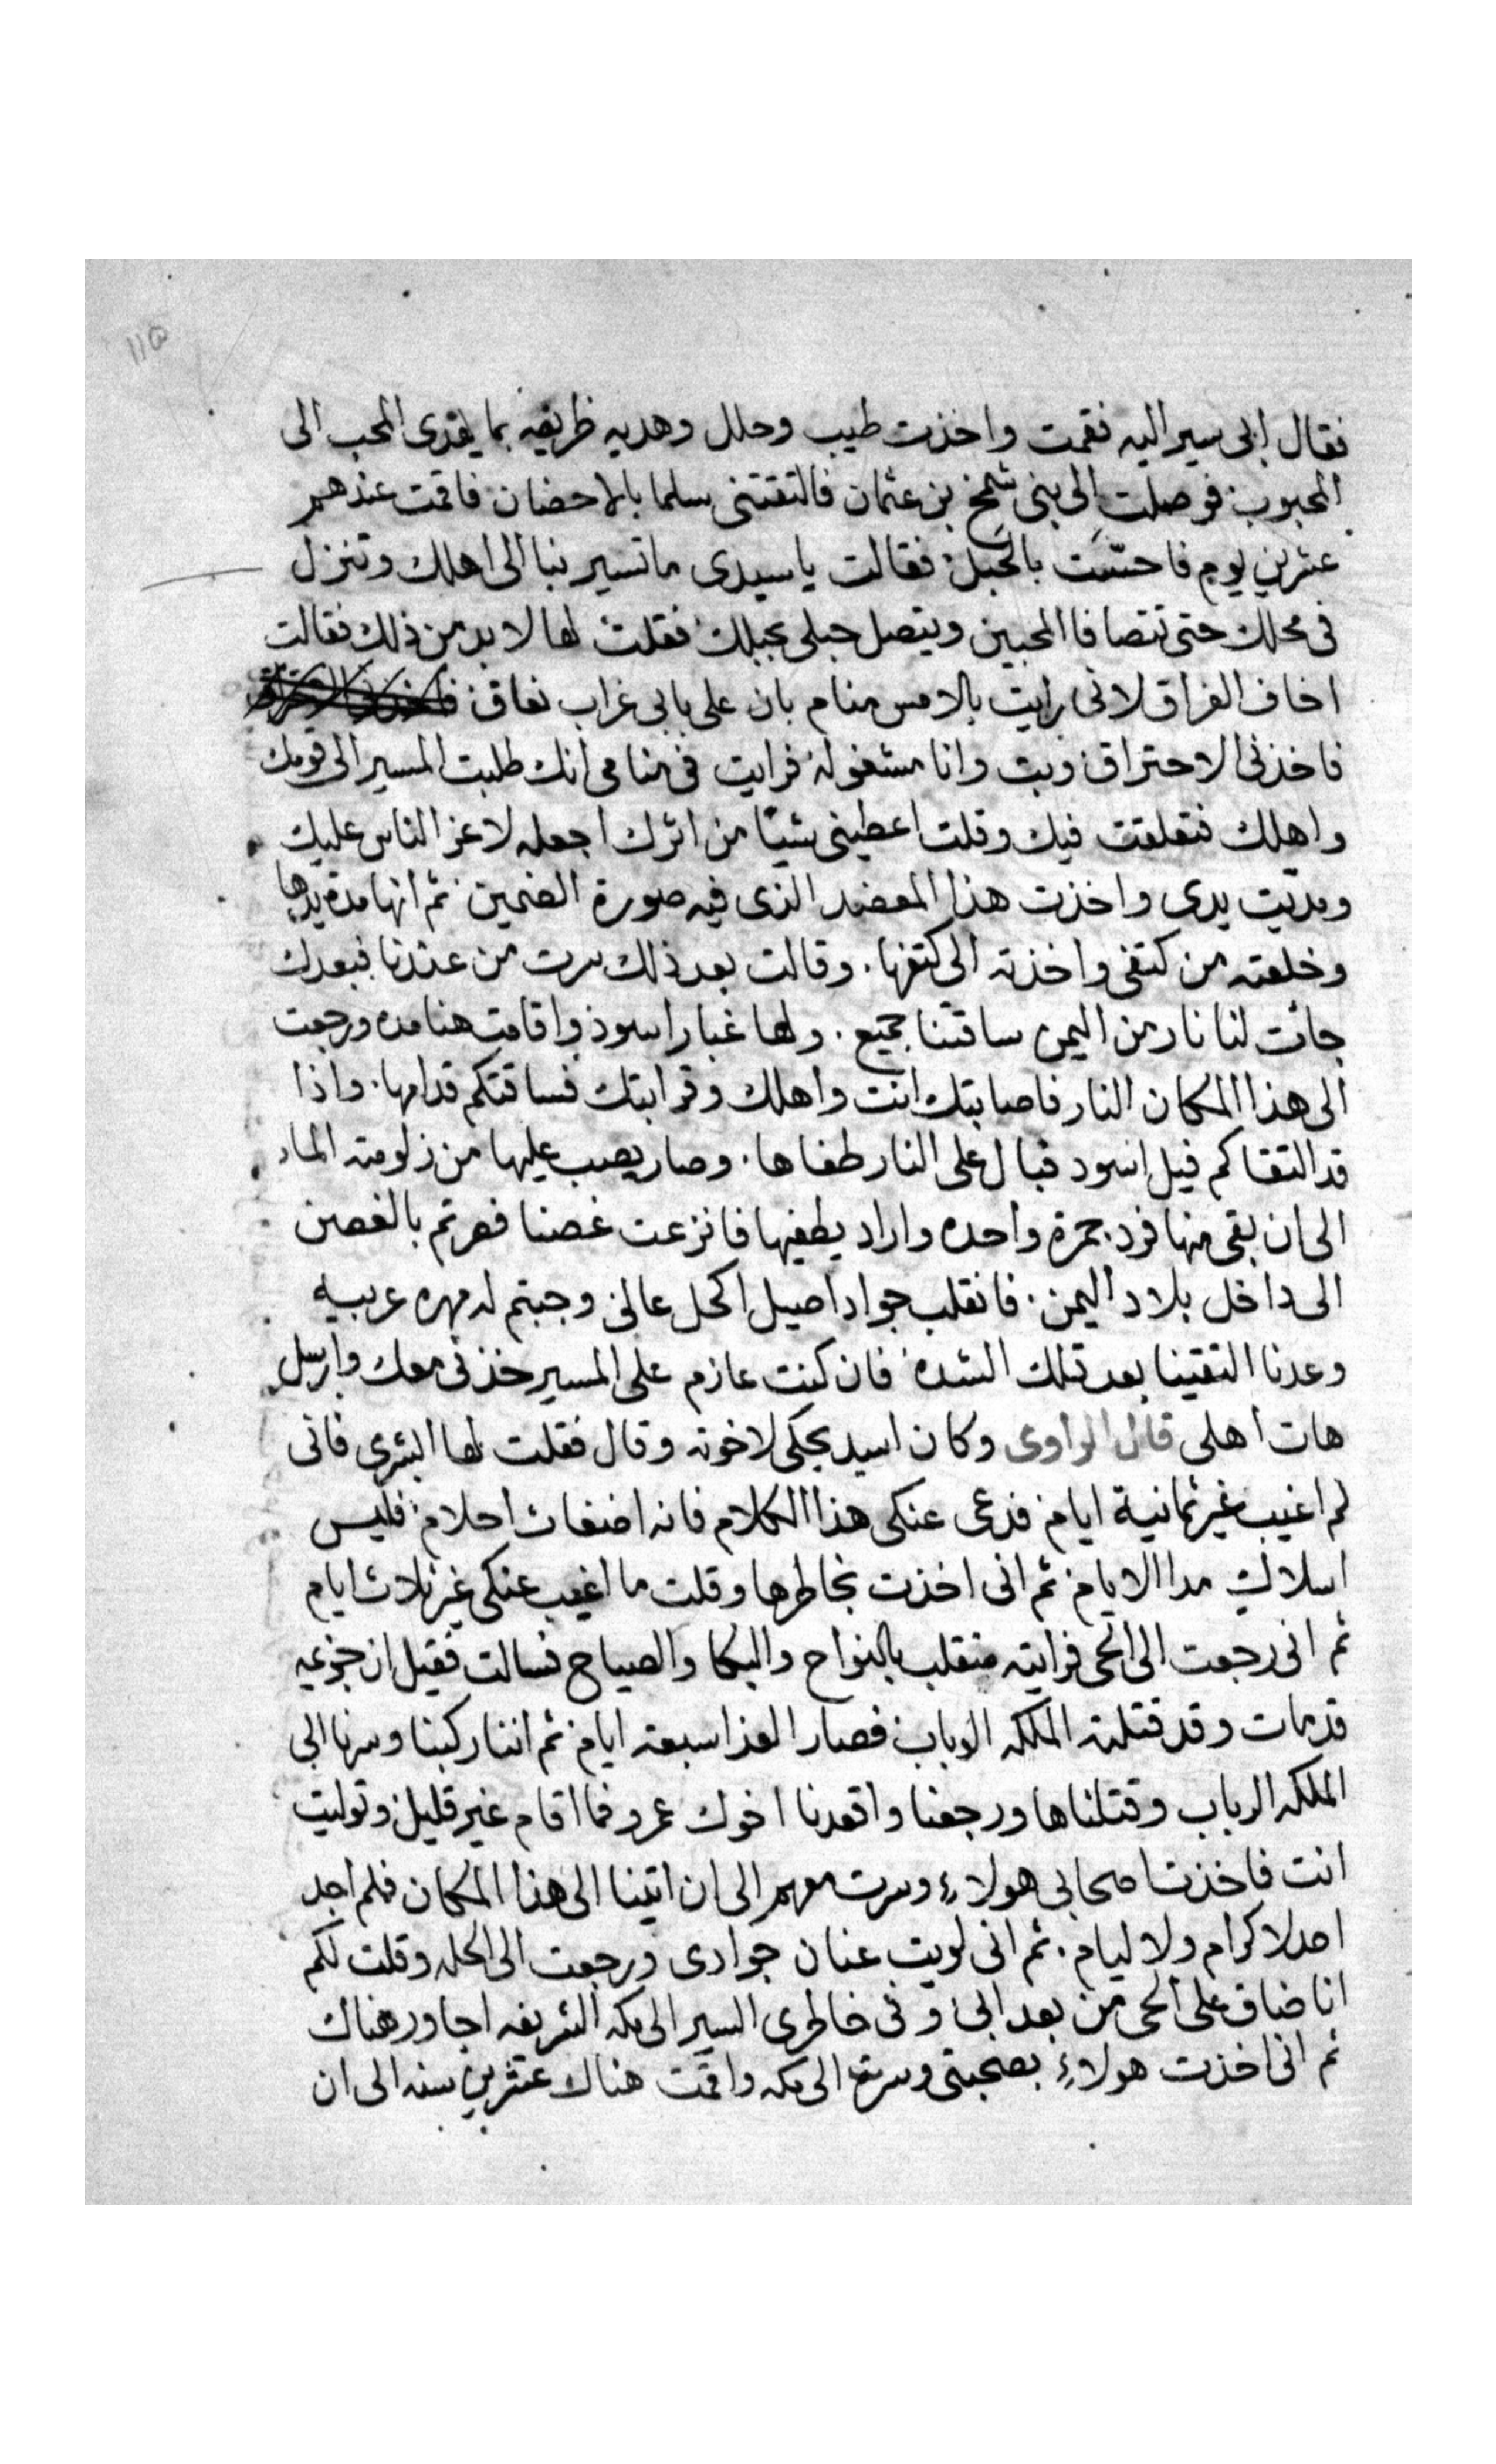 ١١٥
فقال ابى سير اليه فقمت واخذت طيب وحلل وهديه ظريفه بما يهدى المحب الى
المحبوب فوصلت الى بنى شمخ بن عثمان فالتقتنى سلما بالاحضان فاقمت عندهم
عشرين يوم فاحسّت بالحبل فقالت ياسيدى ماتسير بنا الى اهلك وتنزل
فى محلك حتى تتصافا المحبين ويتصل حبلى بحبلك فقلت لها لابد من ذلك فقالت
اخاف الفراق لانى رايت بالامس منام بان على بابى غراب نعاق
فاخذنى الاحتراق وبت وانا مشغوله فرايت فى منامى انك طلبت المسير الى قومك
واهلك فتعلقت فيك وقلت اعطينى شيئا من اثرك اجعله لاعز الناس عليك
ومدّيت يدى واخذت هذا المعضد الذى فيه صورة الصنمين ثم انها مدة يدها
وخلعته من كتفى واخذته الى كتفها. وقالت بعد ذلك سرت من عندنا فبعدك
جائت لنا نار من اليمن ساقتنا جميع. ولها غبار اسود واقامت هنا مده ورجعت
الى هذا المكان النار فاصابتك انت واهلك وقرابتك فساقتكم قدامها. واذا
قد التقاكم فيل اسود فبال على النار طفاها. وصار يصب عليها من زلومته الماء
الى ان بقى منها فرد جمرة واحده واراد يطفيها فانزعت غصنا فصرتم بالغصن
الى داخل بلاد اليمن. فانقلب جوادا اصيل اكحل عالى وجبتم له مهره عربيه
وعدنا التقينا بعد تلك الشده فان كنت عازم على المسير خذنى معك وارسل
هات اهلى قال الراوى وكان اسيد يحكى لاخوته وقال فقلت لها ابشرى فانى
لم اغيب غير ثمانية ايام فدعى عنكى هذا الكلام فانه اضغاث احلام فليس
اسلاكِ مدا الايام ثم انى اخذت بخاطرها وقلت ما اغيب عنكى غير ثلاث ايام
ثم انى رجعت الى الحى فرايته منقلب بالنواح والبكا والصياح فسالت فقيل ان جزعيه
قد مات وقد قتلته الملكه الرباب فصار العزا سبعة ايام ثم اننا ركبنا وسرنا الى
الملكه الرباب وقتلناها ورجعنا واقعدنا اخوك عمرو فما اقام غير قليل وتوليت
انت فاخذت اصحابى هولاء وسرت معهم الى ان اتينا الى هذا المكان فلم اجد
احد لا كرام ولا ليام. ثم انى لويت عنان جوادى ورجعت الى الحله وقلت لكم
انا ضاق على الحى من بعد ابى وفى خاطرى السير الى مكه الشريفه اجاور هناك
ثم انى اخذت هولاء بصحبتى وسرت الى مكه واقمت هناك عشرين سنه الى ان